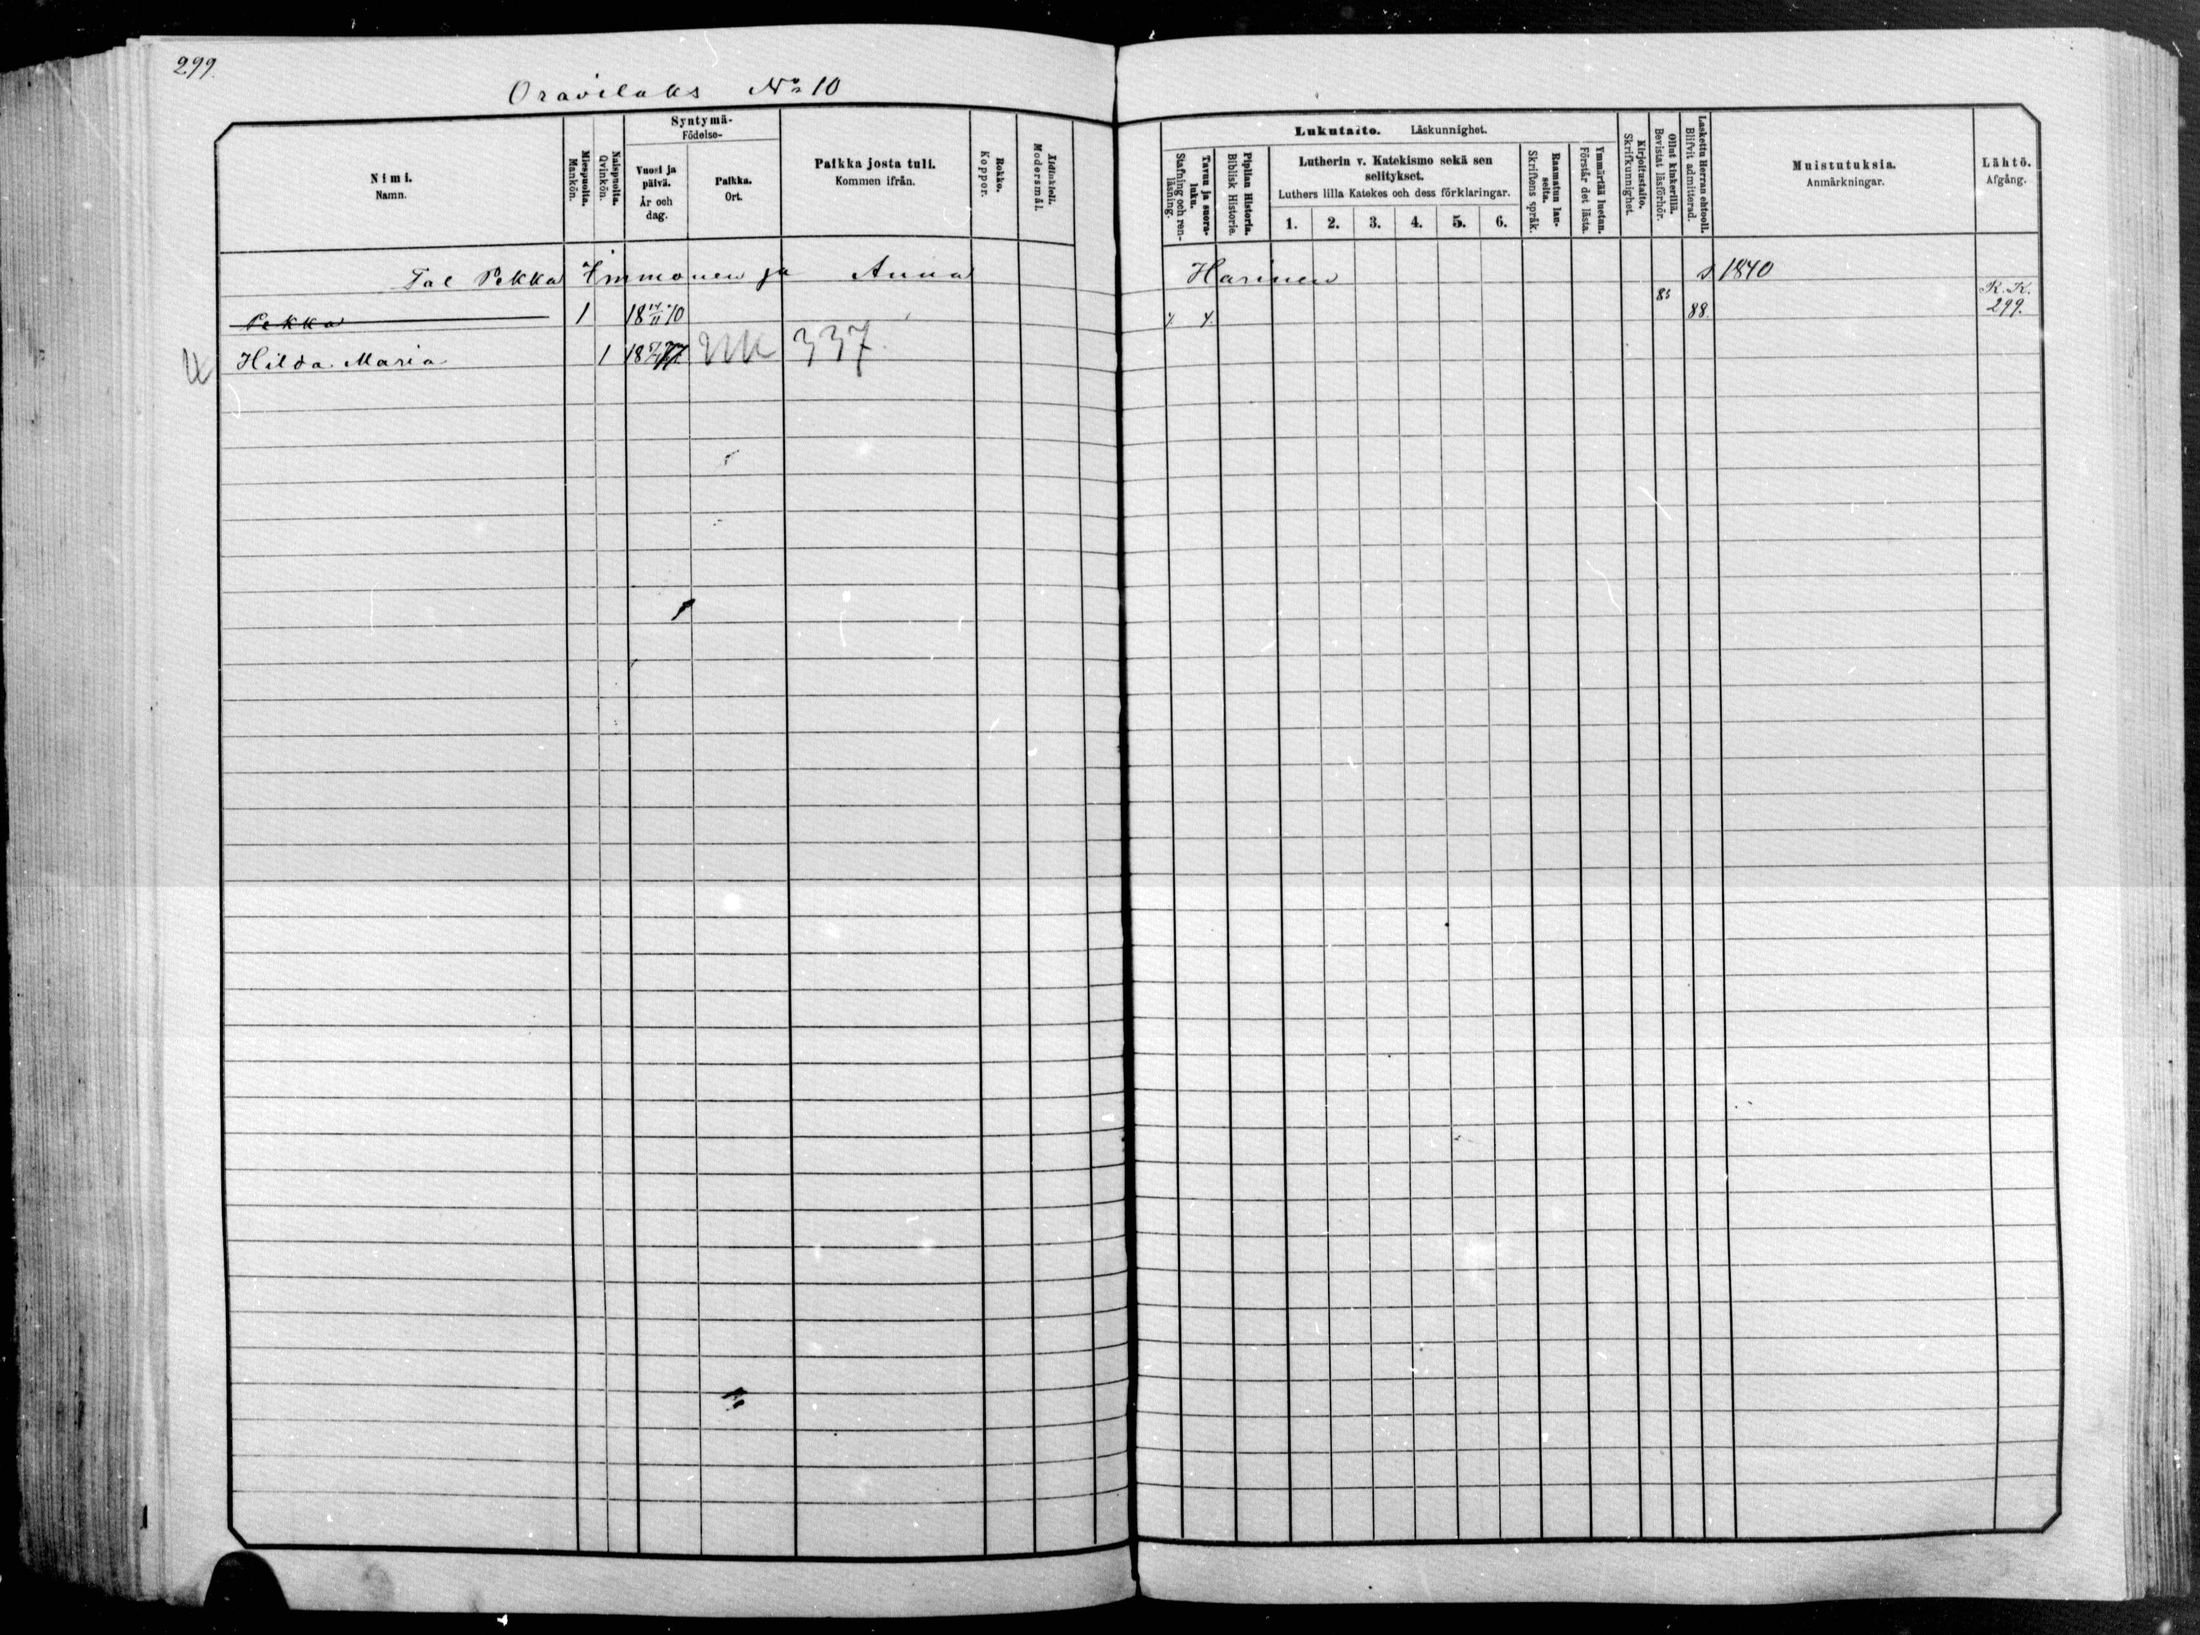 299.
Oravilaks No 10
Syntymä-
Födelse-
Nimi.
Namn.
Miespuolia.
Mankön.
Naispuolia.
Qvinkön.
Vuosi ja päivä.
År och dag.
Paikka.
Ort.
Paikka josta tuli.
Kommen ifrån.
Rokko.
Koppor.
Äidinkieli.
Modersmål.
Lukutaito. Läskunnighet.
Tavuu ja suora-luku.
Stafning och ren-läsning.
Piplian Historia.
Biblisk Historie.
Lutherin v. Katekismo sekä sen selitykset.
Luthers lilla Katekes och dess förklaringar.
1. 2. 3. 4. 5. 6.
Raamatun lauseita.
Skriftens språk.
Ymmärtää luetun.
Förstår det lästa.
Kirjoitustaito.
Skrifkunnighet.
Ollut kinkerillä.
Bevistat läsförhör.
Laskettu Herran ehtooll.
Blifvit admitterad.
Muistutuksia.
Anmärkningar.
Lähtö.
Afgång.
Tal Pekka Immonen ja Anna Harinen s 1840
Pekka 1 18 14/11 70 85 88. R.K. 299.
Hilda Maria 1 77 UK 337.